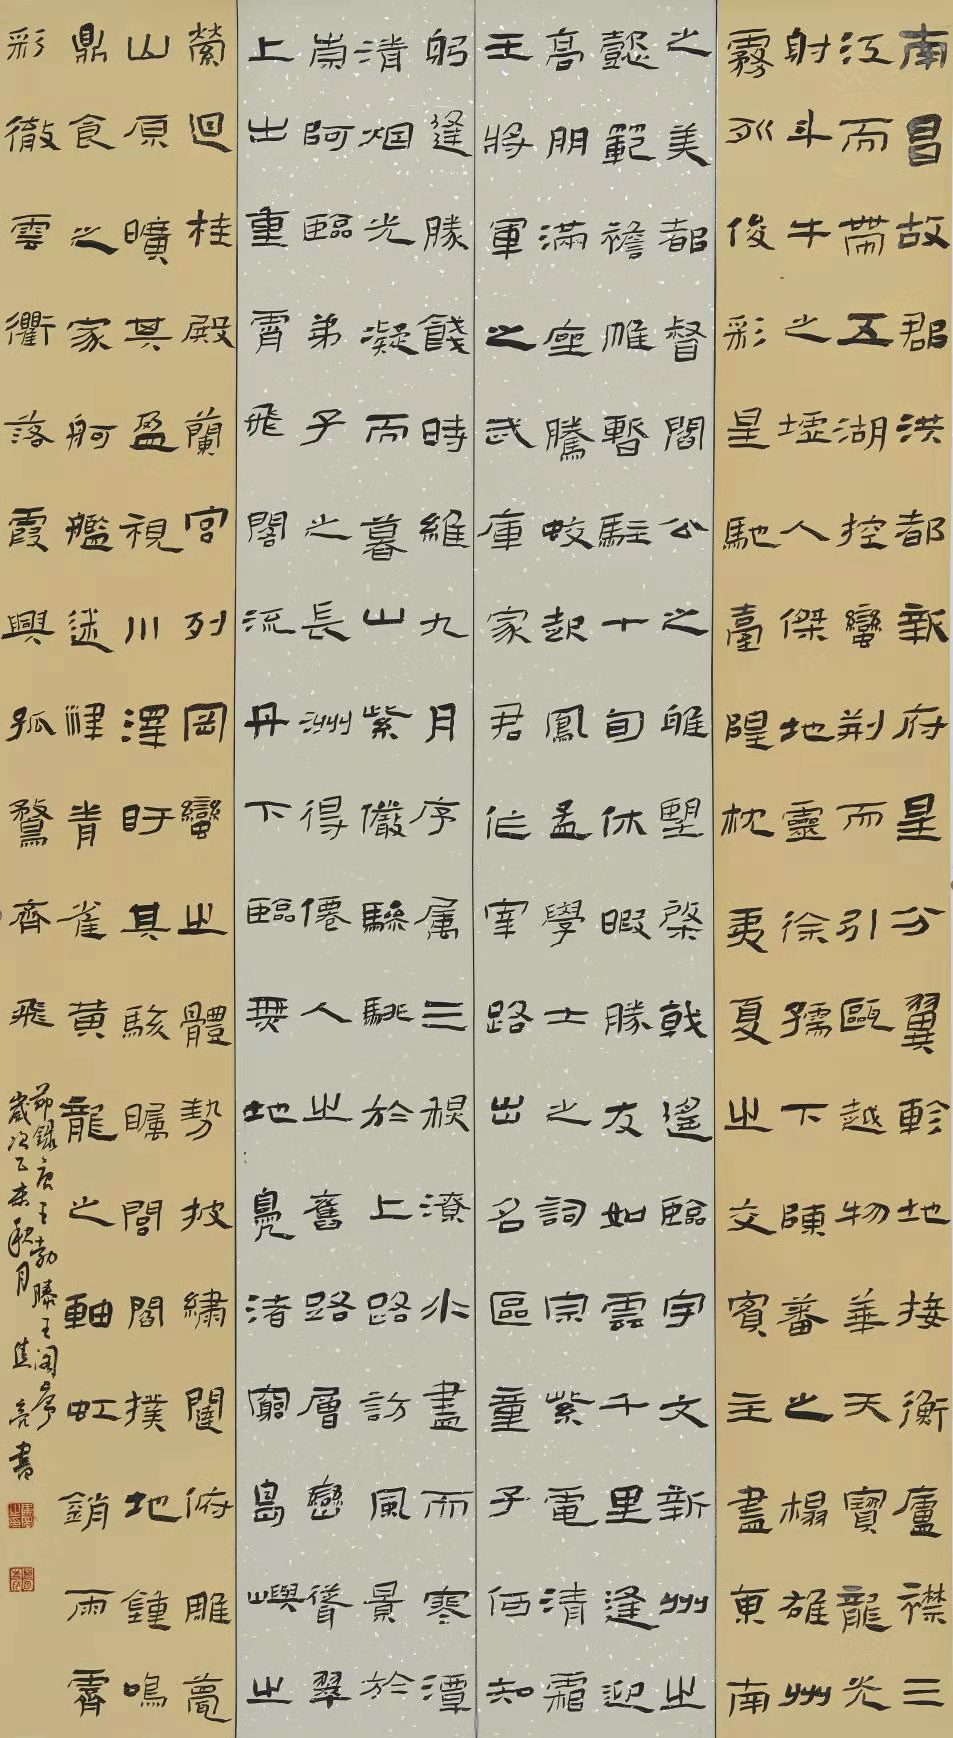 南昌故郡洪都新府星分翼軫地接衡廬襟三
江而帶五湖控蠻荆而引甌越物華天寶龍光
射斗牛之墟人傑地靈徐孺下陳蕃之榻雄州
霧列俊彩星馳臺隍枕夷夏之交賓主盡東南
之美都督閻公之雎朢棨戟遥臨宇文新州之
懿範襜帷暫駐十旬休暇勝友如雲千里逢迎
高朋滿座騰蛟起鳳孟學士之詞宗紫電清霜
王將軍之武庫家君作宰路出名區童子何知
躬逢勝餞時維九月序属三秋潦水盡而寒潭
清烟光凝而暮山紫儼驂騑於上路訪風景於
崇阿臨帝子之長洲得僊人之舊路層巒聳翠
上出重霄飛閣流丹下臨無地鳧渚窮島嶼之
縈迴桂殿蘭宫列岡巒之體勢披繡闥俯雕甍
山原曠其盈視川澤盱其駭矚閭閻撲地鍾鳴
鼎食之家舸艦迷津青雀黄龍之軸虹銷雨霽
彩徹雲衢落霞與孤鶩齊飛
節録唐王勃滕王閣序
歲次乙未秋月 亮書